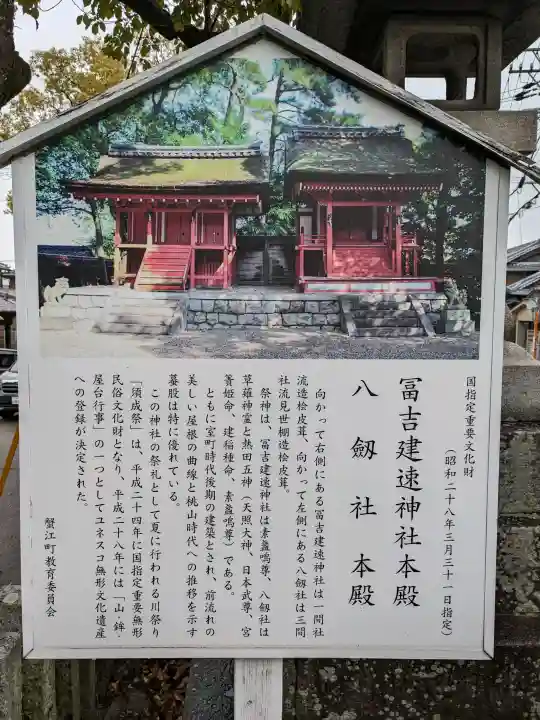 国指定重要文化財
（昭和二十八年三月三十一日指定）
冨吉建速神社本殿
八剱社本殿
向かって右側にある冨吉建速神社は一間社
流造桧皮葺、向かって左側にある八劔社は三間
社流見世棚造桧皮葺。
祭神は、冨吉建速神社は素盞嗚尊、八劔社は
草薙神霊と熱田五神（天照大神、日本武尊、宮
簀姫命、建稲種命、素盞嗚尊）である。
ともに室町時代後期の建築とされ、前流れの
美しい屋根の曲線と桃山時代への推移を示す
蟇股は特に優れている。
この神社の祭礼として夏に行われる川祭り
「須成祭」は、平成二十四年に国指定重要無形
民俗文化財となり、平成二十八年には「山・鉾・
屋台行事」の一つとしてユネスコ無形文化遺産
への登録が決定された。
蟹江町教育委員会